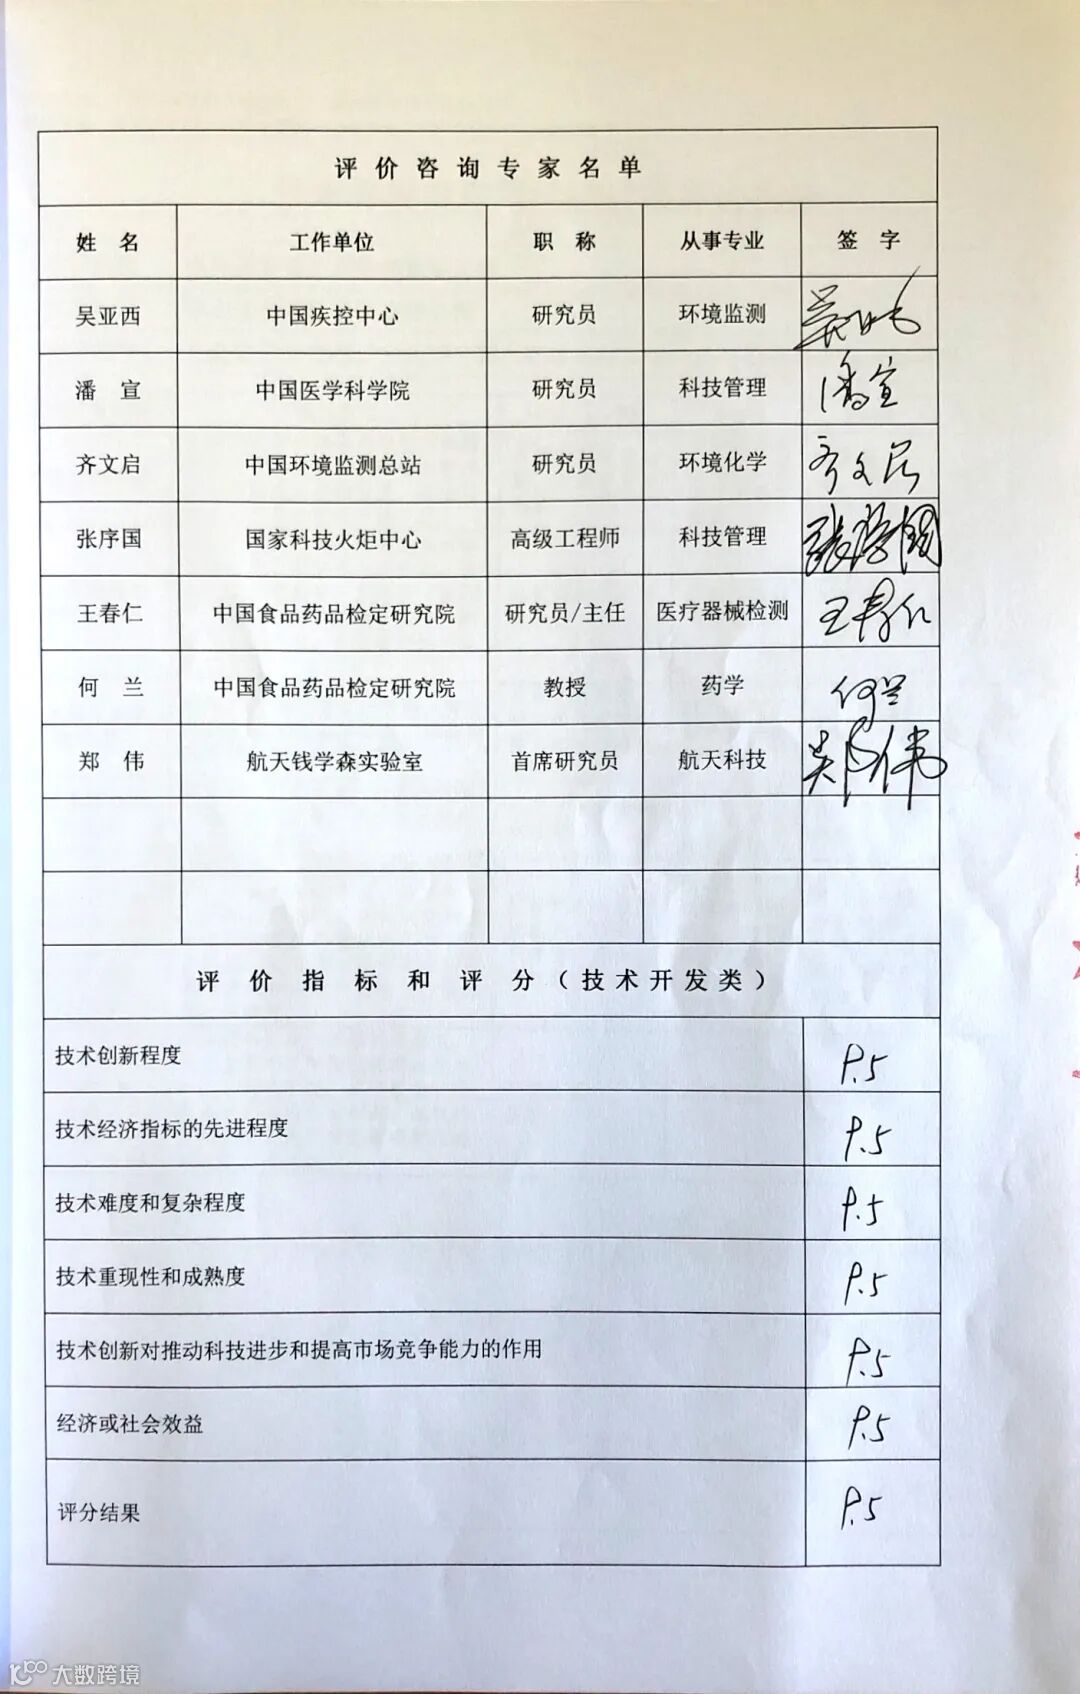 评价咨询专家名单
姓 名 工作单位 职 称 从事专业 签 字
吴亚西 中国疾控中心 研究员 环境监测 吴亚西
潘 宣 中国医学科学院 研究员 科技管理 潘宣
齐文启 中国环境监测总站 研究员 环境化学 齐文启
张序国 国家科技火炬中心 高级工程师 科技管理 张序国
王春仁 中国食品药品检定研究院 研究员/主任 医疗器械检测 王春仁
何 兰 中国食品药品检定研究院 教授 药学 何兰
郑 伟 航天钱学森实验室 首席研究员 航天科技 郑伟
评价指标和评分(技术开发类)
技术创新程度 9.5
技术经济指标的先进程度 9.5
技术难度和复杂程度 9.5
技术重现性和成熟度 9.5
技术创新对推动科技进步和提高市场竞争能力的作用 9.5
经济或社会效益 9.5
评分结果 9.5
大数跨境